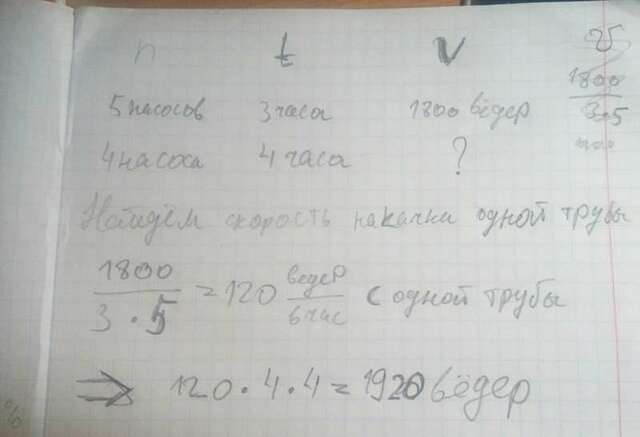 n t V
5 насосов 3 часа 1800 вёдер
4 насоса 4 часа ?
Найдём скорость накачки одной трубы
1800
3 · 5
= 120 ведер
в час
с одной трубы
⇒ 120 · 4 · 4 = 1920 вёдер
1800
3·5